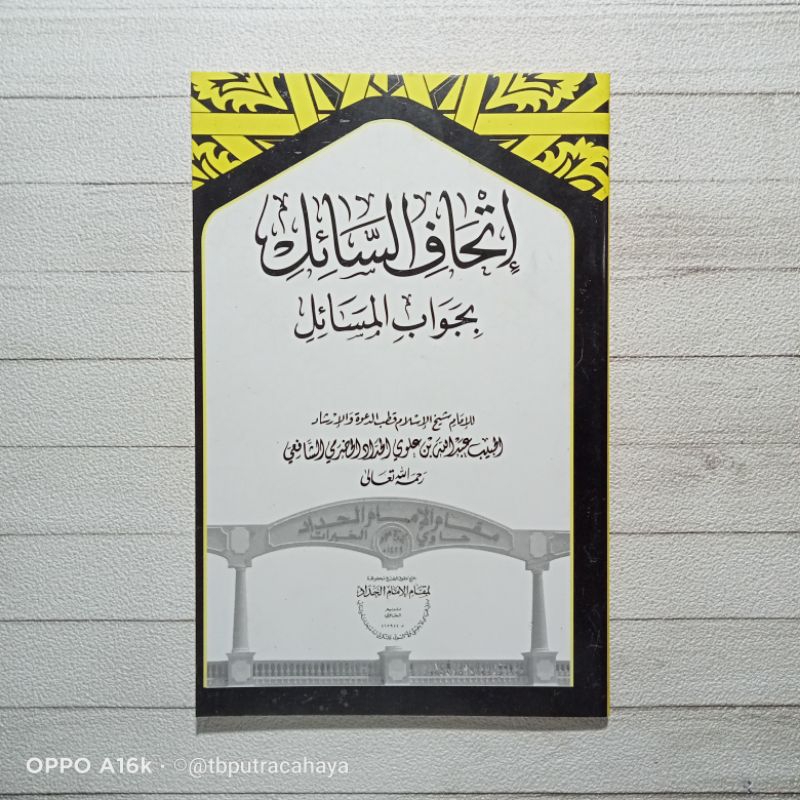 إِتْحَافِ السَّائِلِ
بِجَوَابِ المَسَائِلِ
للإمام شيخ الإسلام قطب الدعوة والإرشاد
الحبيب عبد الله بن علوي الحداد الحضرمي الشافعي
رحمه الله تعالى
مقام الإمام الحداد
حاوي الخيرات
لمقام الإمام الحداد
OPPO A16k · @tbputracahaya